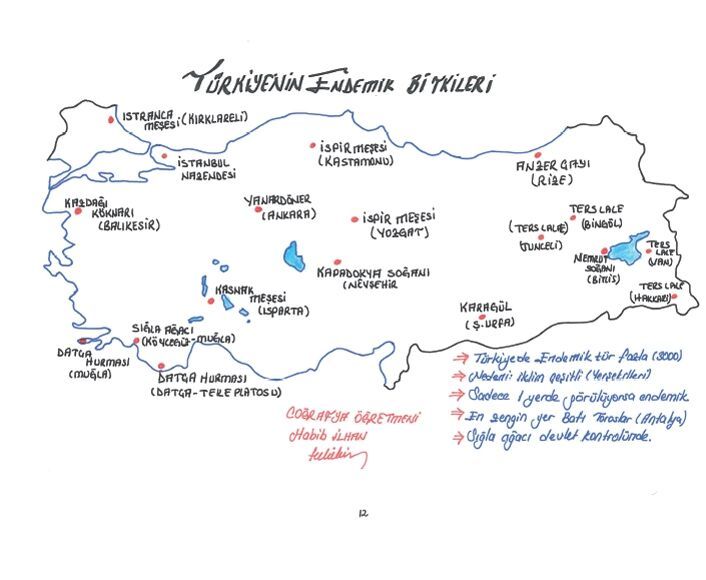 TÜRKİYE'NİN ENDEMİK BİTKİLERİ
ISTRANCA
MEŞESİ (KIRKLARELİ)
İSTANBUL
NAZENDESİ
İSPİR MEŞESİ
(KASTAMONU)
ANZER ÇAYI
(RİZE)
KAZDAĞI
KÖKNARI
(BALIKESİR)
YANARDÖNER
(ANKARA)
İSPİR MEŞESİ
(YOZGAT)
TERS LALE
(BİNGÖL)
(TERS LALE)
(TUNCELİ)
NEMRUT
SOĞANI
(BİTLİS)
TERS
LALE
(VAN)
TERS LALE
(HAKKARİ)
KAPADOKYA SOĞANI
(NEVŞEHİR
KASNAK
MEŞESİ
(ISPARTA)
KARAGÜL
(Ş.URFA)
SIĞLA AĞACI
(KÖYCEĞİZ-MUĞLA)
DATÇA
HURMASI
(MUĞLA)
DATÇA HURMASI
(DATÇA-TEKE PLATOSU)
→ Türkiyede Endemik tür fazla (3000)
→ Nedeni: iklim çeşitli (Yerşekilleri)
→ Sadece 1 yerde görülüyorsa endemik
→ En zengin yer Batı Toroslar (Antalya)
→ Sığla ağacı devlet kontrolünde.
COĞRAFYA ÖĞRETMENİ
Habib İLHAN
12